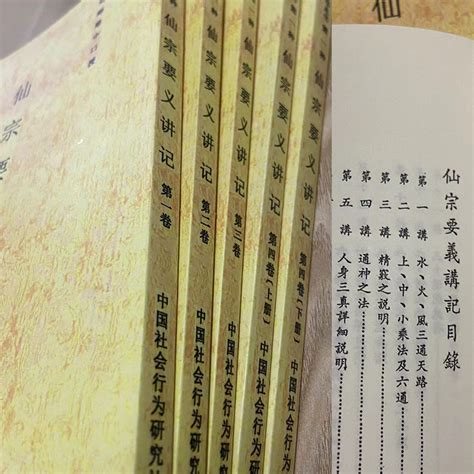 仙宗要
仙宗要义讲记 第一卷 中国社会行为研究
仙宗要义讲记 第二卷 中国社会行为研究
仙宗要义讲记 第三卷 中国社会行为
仙宗要义讲记 第四卷(上册) 中国社会行
仙宗要义讲记 第四卷(下册) 中国社会行
仙
仙宗要義講記目錄
第一講 水、火、風三通天路
第二講 上、中、小乘法及六通
第三講 精竅之說明
第四講 通神之法
第五講 人身三真詳細說明